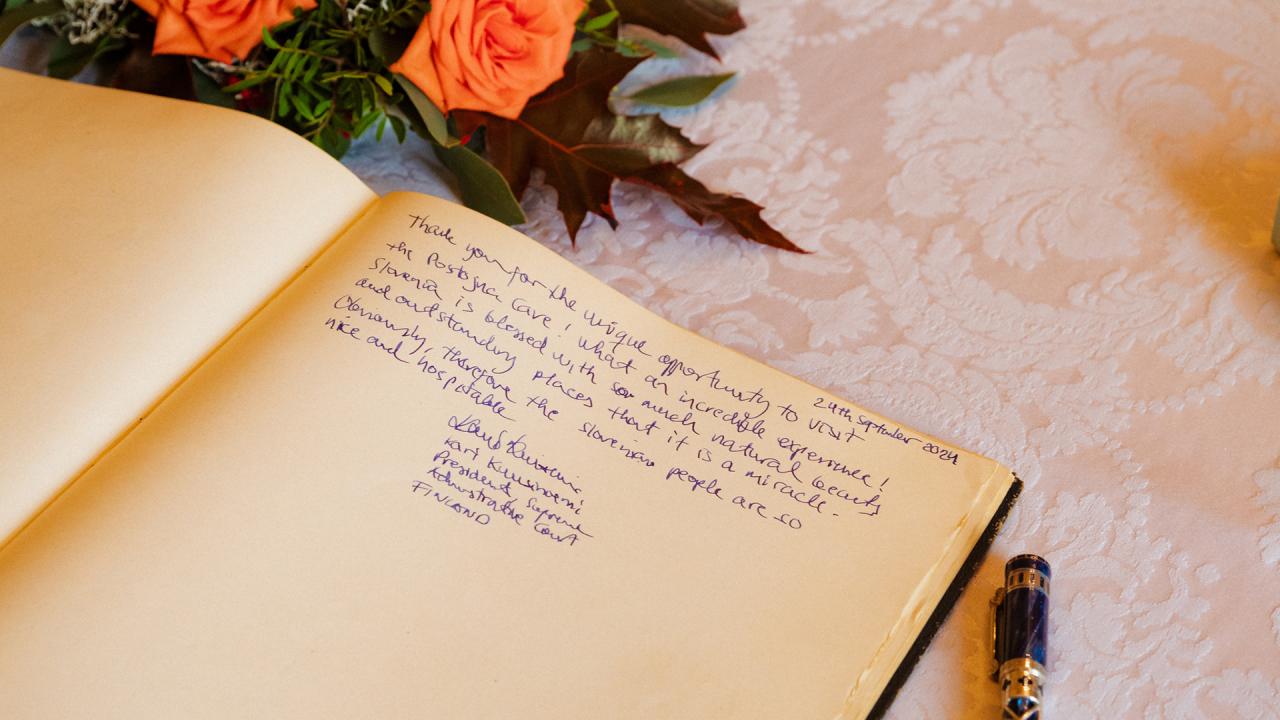 24th September 2024
Thank you for the unique opportunity to visit
the Postojna Cave! What an incredible experience!
Slovenia is blessed with so much natural beauty
and outstanding places that it is a miracle.
Obviously, therefore the Slovenian people are so
nice and hospitable
Kari Kuusiniemi
President, Supreme
Administrative Court
FINLAND